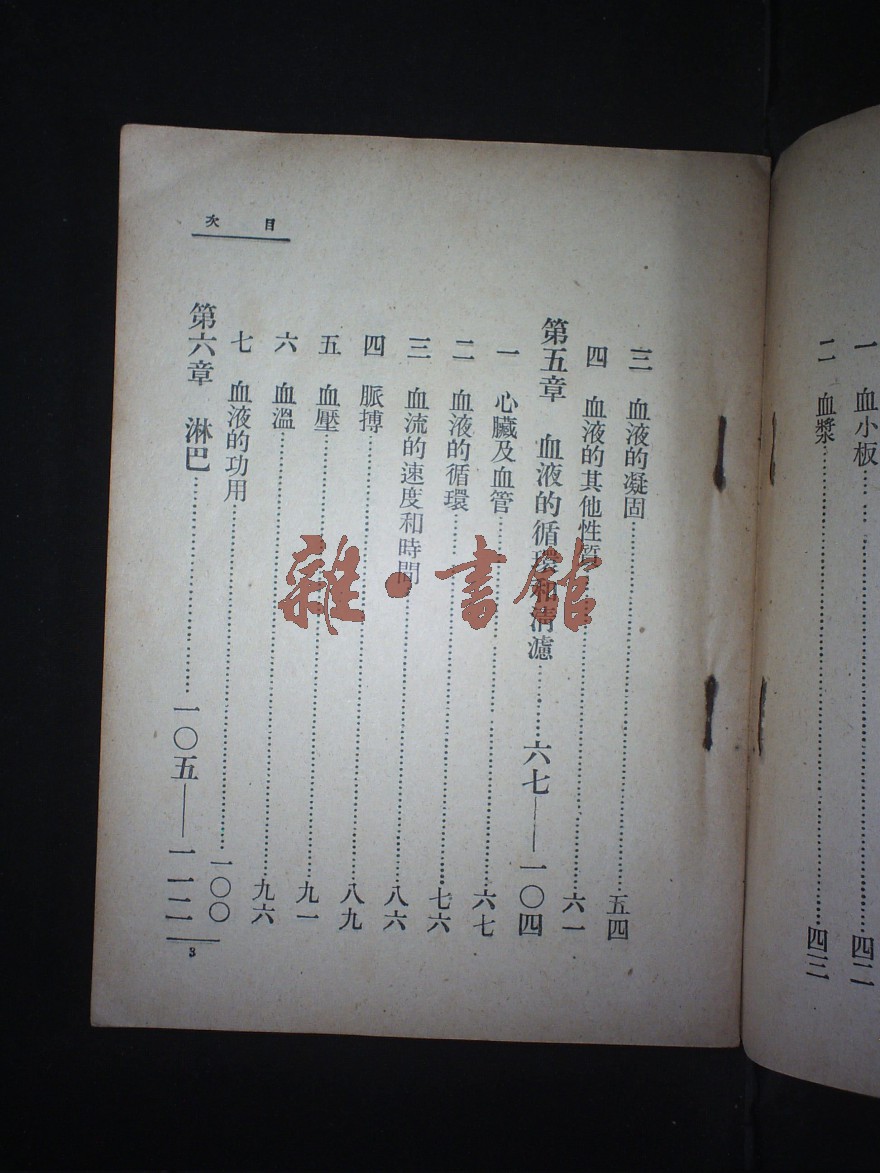 一　血小板……四二
二　血漿……四三
目次
三　血液的凝固……五四
四　血液的其他性質……六一
第五章　血液的循環和清濾……六七——一〇四
一　心臟及血管……六七
二　血液的循環……七六
三　血流的速度和時間……八六
四　脈搏……八九
五　血壓……九一
六　血溫……九六
七　血液的功用……一〇〇
第六章　淋巴……一〇五——一一二
3
雜·書館